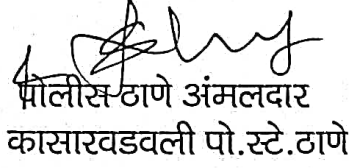 पोलीस ठाणे अंमलदार
कासारवडवली पो.स्टे.ठाणे